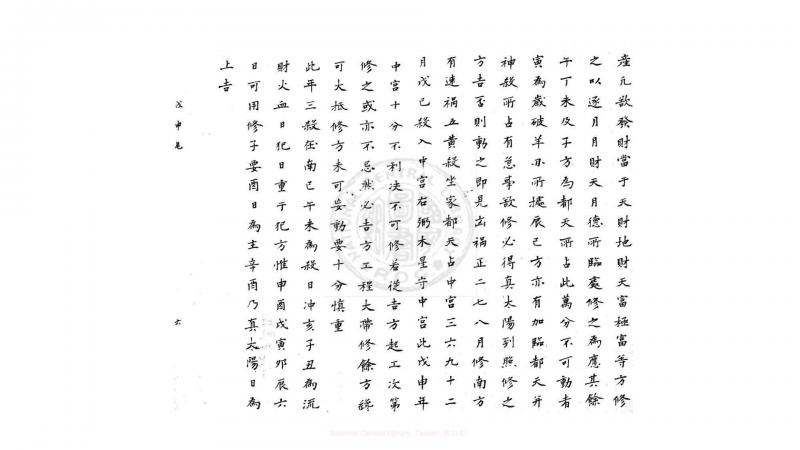 産凡欲發財當于天財地財天富極富等方修
之以逐月月財天月德所臨處修之為應其餘
午丁未及子方為都天所占此萬分不可動者
寅為歲破羊刃所據辰巳方亦有加臨都天并
神殺所占有急事欲修必得真太陽到照修之
方吉否則動之即見凶禍正二七八月修南方
有速禍五黃殺坐家都天占中宮三六九十二
月戊己殺入中宮右弼木星守中宮此戊申年
中宮十分不利決不可修若從吉方起工次第
修之或亦不忌然必吉方工程大帶修餘方纔
可大抵修方未可妄動要十分慎重
此年三殺在南巳午未為殺日冲亥子丑為流
財火血日犯日重于犯方惟申酉戌寅卯辰六
日可用修子要酉日為主辛酉乃真太陽日為
上吉
戊申
六
National Central Library, Taiwan, R.O.C